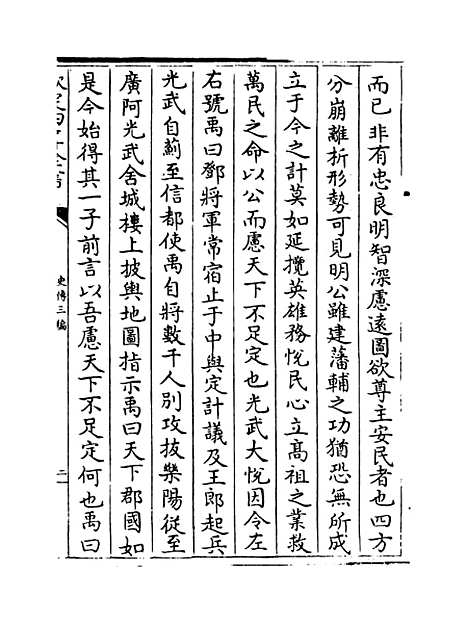 而已非有忠良明智深慮遠圖欲尊主安民者也四方
分崩離析形勢可見明公雖建藩輔之功猶恐無所成
立于今之計莫如延攬英雄務悅民心立髙祖之業救
萬民之命以公而慮天下不足定也光武大悅因令左
右號禹曰鄧將軍常宿止于中與定計議及王郎起兵
光武自薊至信都使禹自將數千人別攻拔樂陽從至
廣阿光武舍城樓上披輿地圖指示禹曰天下郡國如
是今始得其一子前言以吾慮天下不足定何也禹曰
欽定四庫全書
史傳三編
二